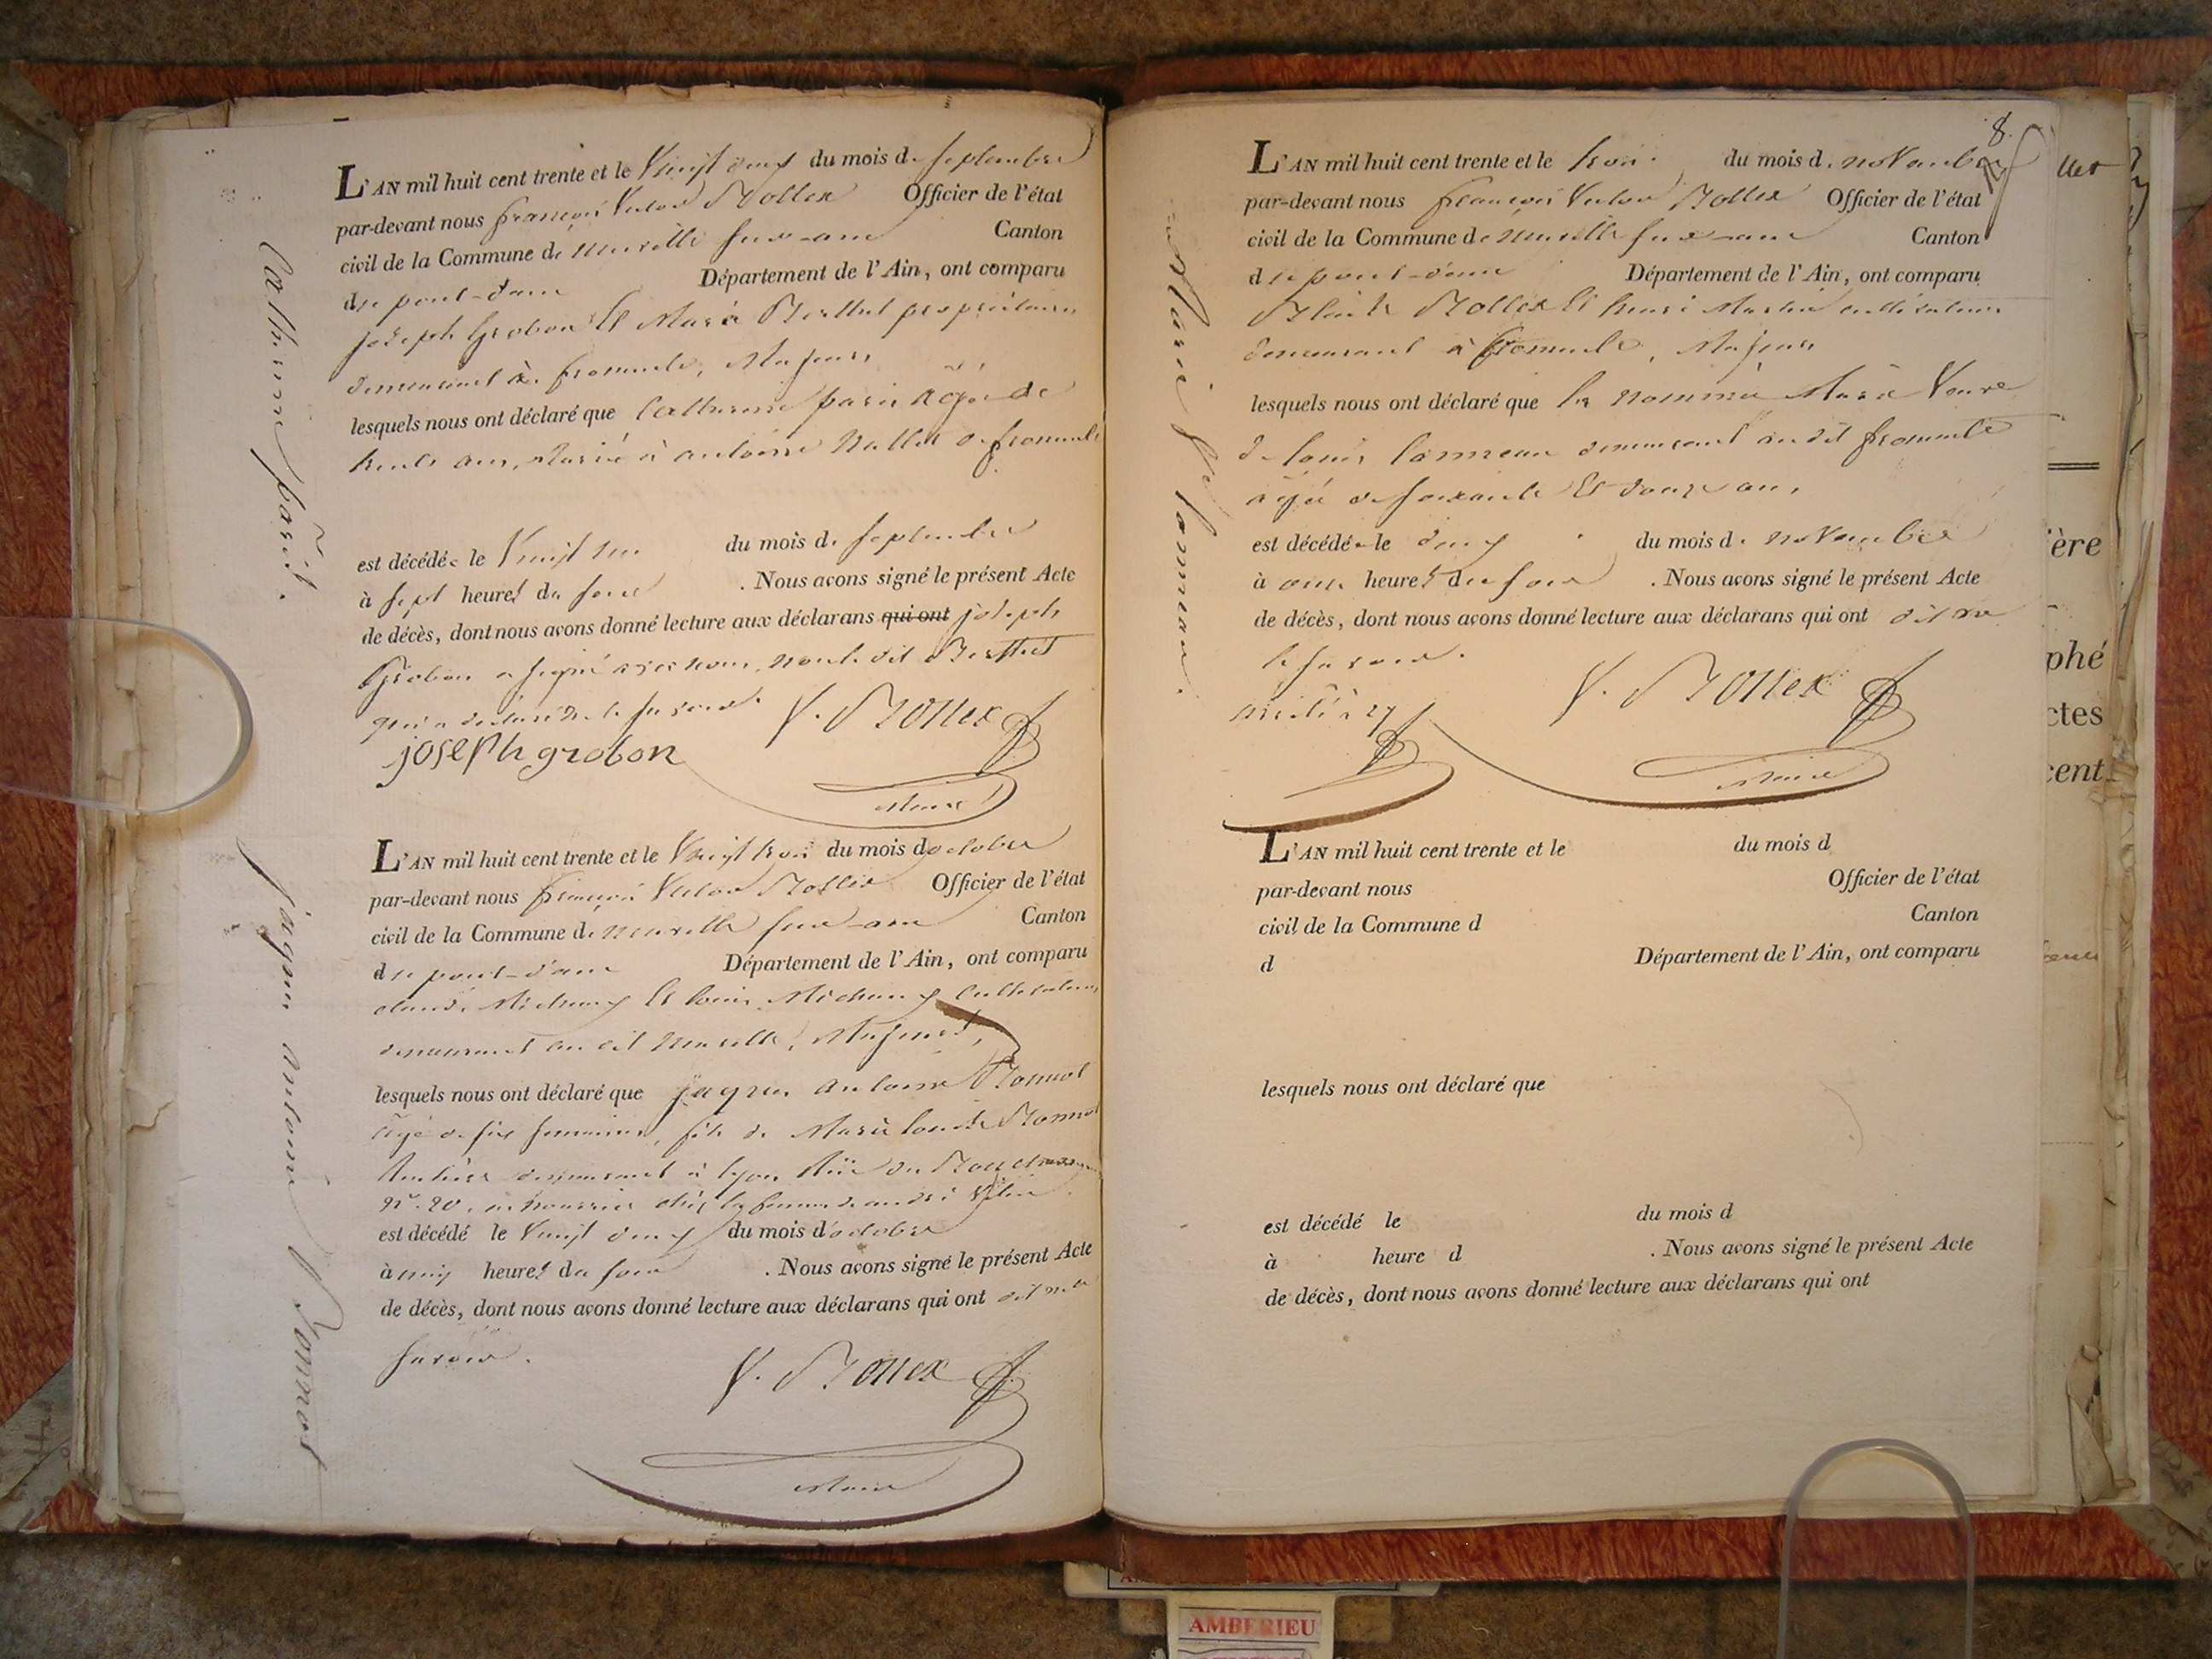 L'AN mil huit cent trente et le Vingt deux du mois de septembre
par-devant nous françois Victor Bollex Officier de l'état
civil de la Commune de neuville sur-ain Canton
de pont-d'ain Département de l'Ain, ont comparu
joseph Grobon Et Marie Berthet propriétaires
demeurant à fromente, Majeurs
lesquels nous ont déclaré que Catherine paris âgée de
trente ans, Mariée à antoine Nallet de fromente
est décédée le Vingt un du mois de septembre
à sept heures du soir . Nous avons signé le présent Acte
de décès, dont nous avons donné lecture aux déclarans qui ont joseph
Grobon a signé avec nous, non le dit Berthet
qui a déclaré ne le savoir.
joseph grobon
Maire
Catherine paris.
L'AN mil huit cent trente et le Vingt trois du mois d'octobre
par-devant nous françois Victor Bollex Officier de l'état
civil de la Commune de neuville sur-ain Canton
de pont-d'ain Département de l'Ain, ont comparu
claude Michaux Et louis Michaux Cultivateurs
demeurant au dit neuville, Majeurs,
lesquels nous ont déclaré que jaques antoine Bonnot
âgé de six semaines, fils de Marie louise Bonnot
demeurant à lyon Rüe du
n°. 20. en nourrice chés la femme de andré
est décédé le Vingt deux du mois d'octobre
à heures du soir . Nous avons signé le présent Acte
de décès, dont nous avons donné lecture aux déclarans qui ont dit ne le
savoir.
Maire
jaques antoine Bonnot
8.
L'AN mil huit cent trente et le trois du mois de novembre
par-devant nous françois Victor Bollex Officier de l'état
civil de la Commune de neuville sur-ain Canton
de pont-d'ain Département de l'Ain, ont comparu
Bollex Et Martin cultivateurs
demeurant à fromente, Majeurs
lesquels nous ont déclaré que la nommée Marie Veuve
de louis lanneau demeurant au dit fromente
âgée de soixante Et douze ans,
est décédée le deux du mois de novembre
à onze heures du soir . Nous avons signé le présent Acte
de décès, dont nous avons donné lecture aux déclarans qui ont dit ne
le savoir.
Maire
L'AN mil huit cent trente et le du mois d
par-devant nous Officier de l'état
civil de la Commune d Canton
d Département de l'Ain, ont comparu
lesquels nous ont déclaré que
est décédé le du mois d
à heure d . Nous avons signé le présent Acte
de décès, dont nous avons donné lecture aux déclarans qui ont
ère
phé
ctes
cent
AMBERIEU